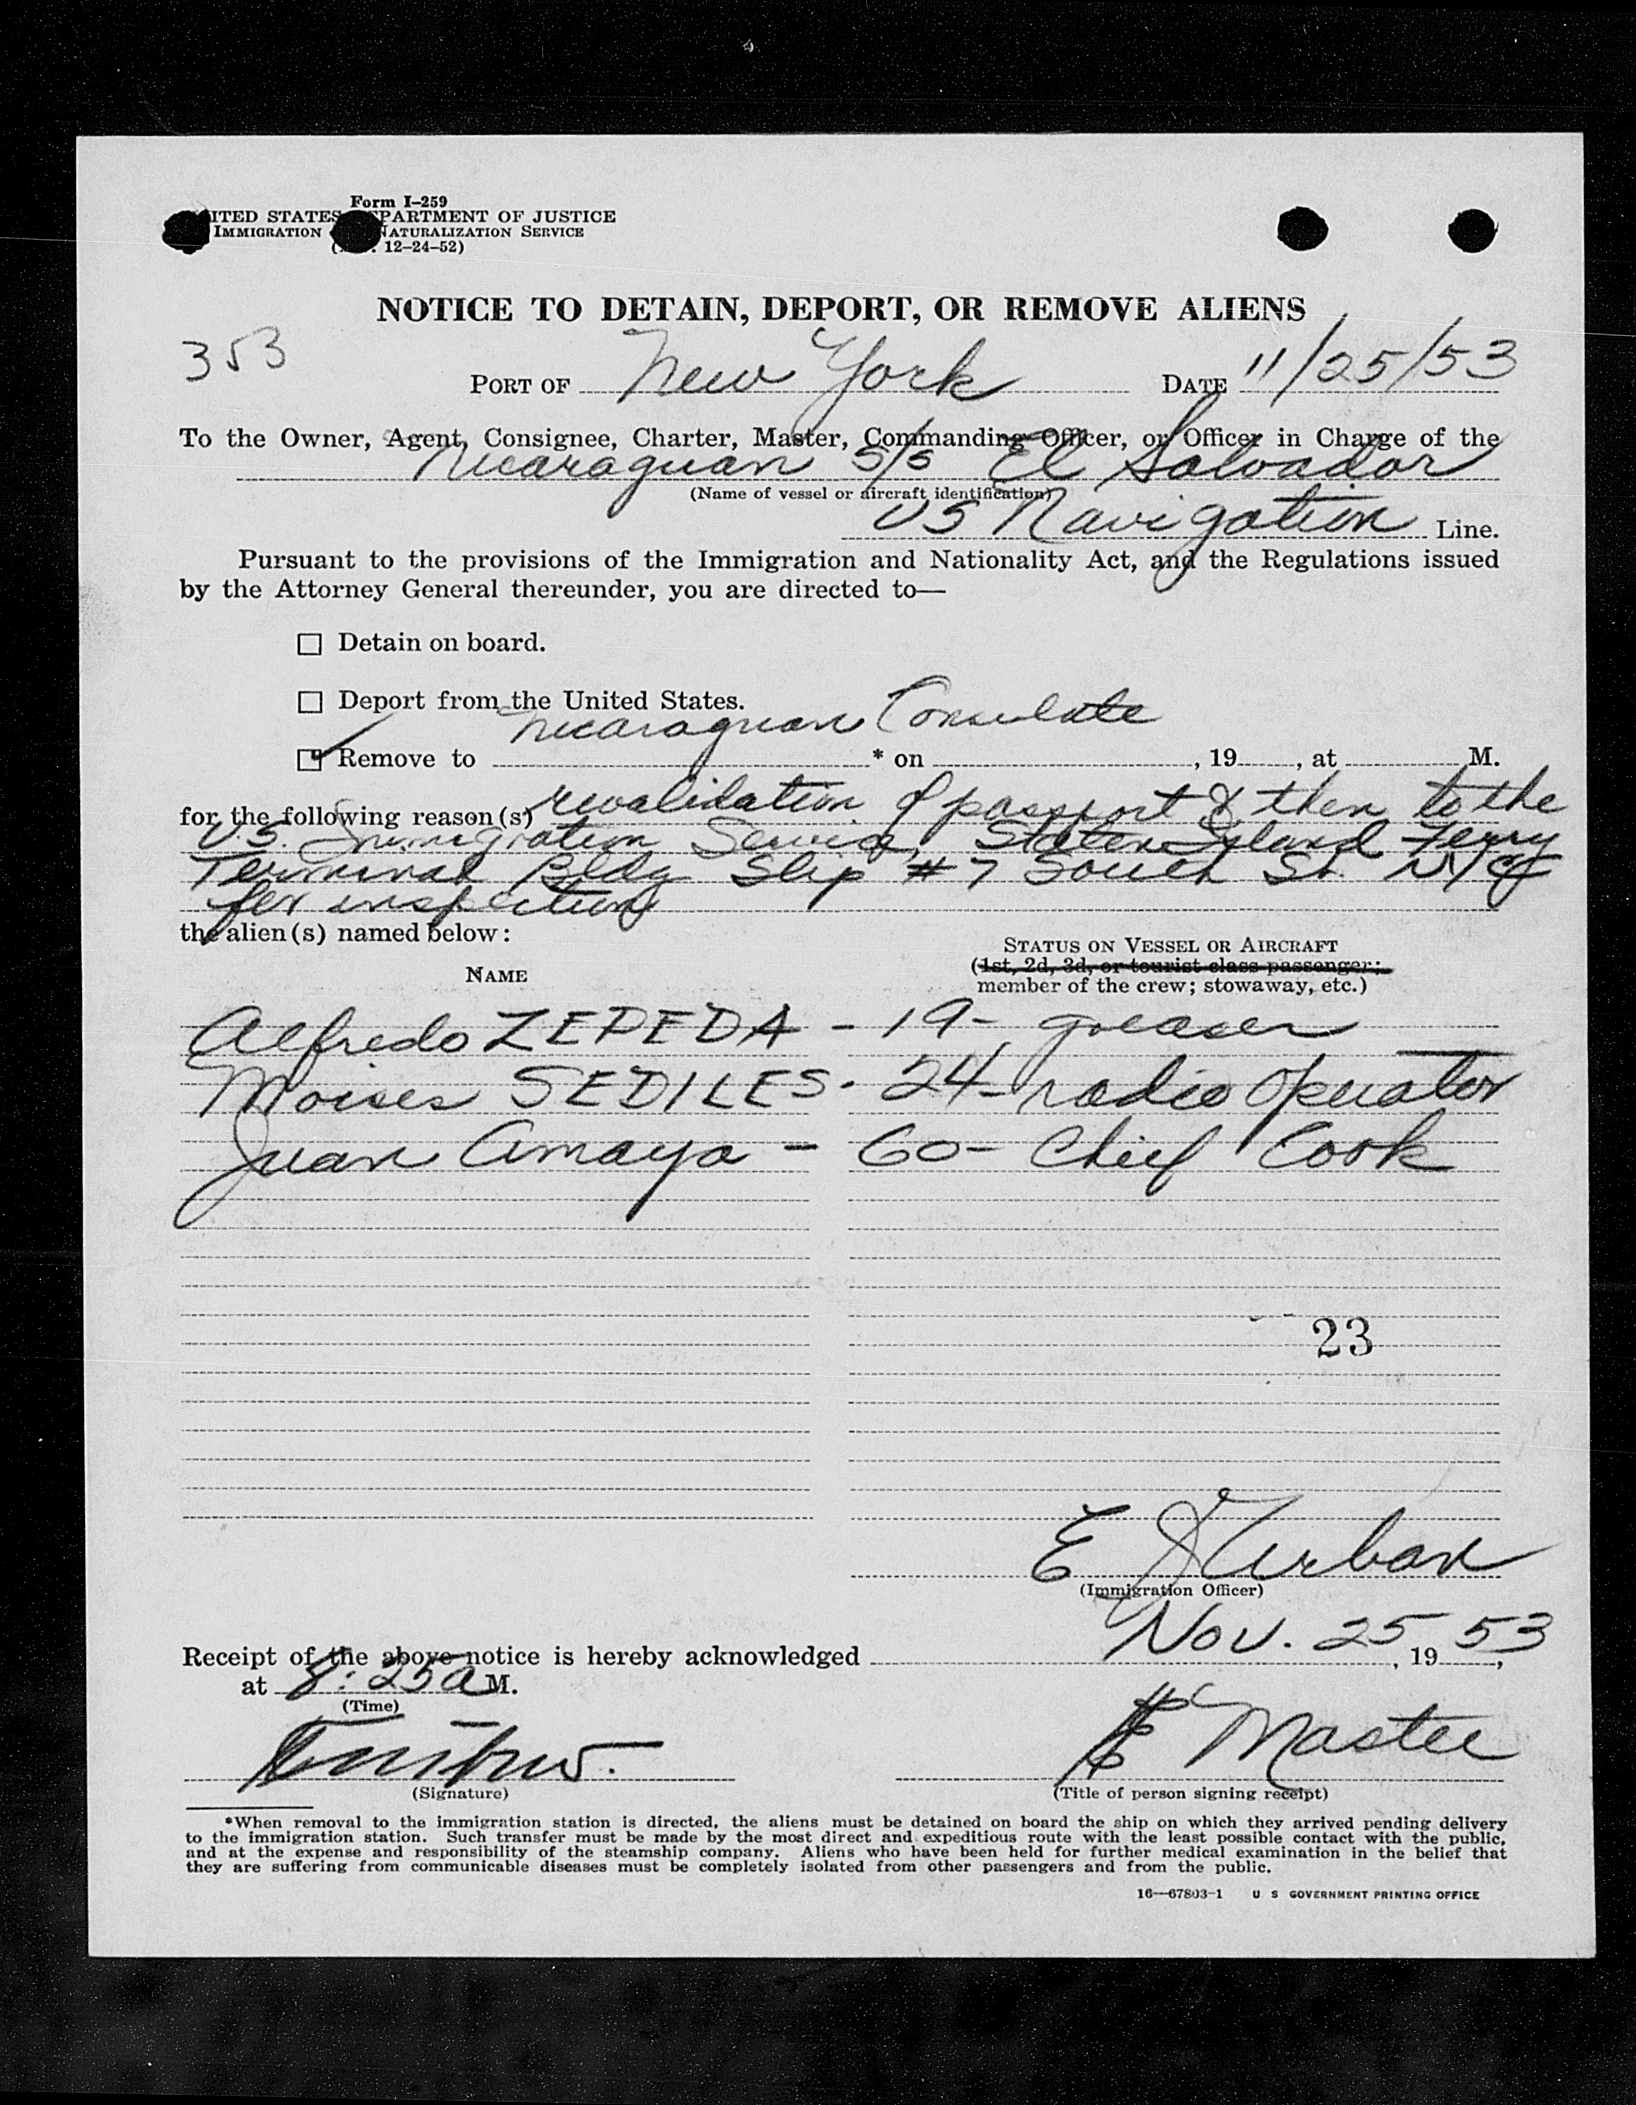 Form I-259
ITED STATES PARTMENT OF JUSTICE
IMMIGRATION NATURALIZATION SERVICE
12-24-52)
NOTICE TO DETAIN, DEPORT, OR REMOVE ALIENS
353
PORT OF New York DATE 11/25/53
To the Owner, Agent, Consignee, Charter, Master, Commanding Officer, or Officer in Charge of the
Nicaraguan S/S El Salvador
(Name of vessel or aircraft identification)
US Navigation Line.
Pursuant to the provisions of the Immigration and Nationality Act, and the Regulations issued
by the Attorney General thereunder, you are directed to—
☐ Detain on board.
☐ Deport from the United States.
Nicaraguan Consulate
☑ Remove to * on , 19 , at M.
for the following reason(s) revalidation of passport & then to the
U.S. Immigration Service, Staten Island Ferry
Terminal Bldg Slip #7 South St. NYC
for inspection
the alien(s) named below:
STATUS ON VESSEL OR AIRCRAFT
NAME (1st, 2d, 3d, or tourist class passenger;
member of the crew; stowaway, etc.)
Alfredo ZEPEDA - 19 - greaser
Moises SEDILES - 24 - radio operator
Juan Amaya - 60 - Chief Cook
23
E J Urban
(Immigration Officer)
Receipt of the above notice is hereby acknowledged Nov. 25, 1953,
at 8:25 a M.
(Time)
Master
(Signature) (Title of person signing receipt)
*When removal to the immigration station is directed, the aliens must be detained on board the ship on which they arrived pending delivery
to the immigration station. Such transfer must be made by the most direct and expeditious route with the least possible contact with the public,
and at the expense and responsibility of the steamship company. Aliens who have been held for further medical examination in the belief that
they are suffering from communicable diseases must be completely isolated from other passengers and from the public.
16—67803-1 U S GOVERNMENT PRINTING OFFICE